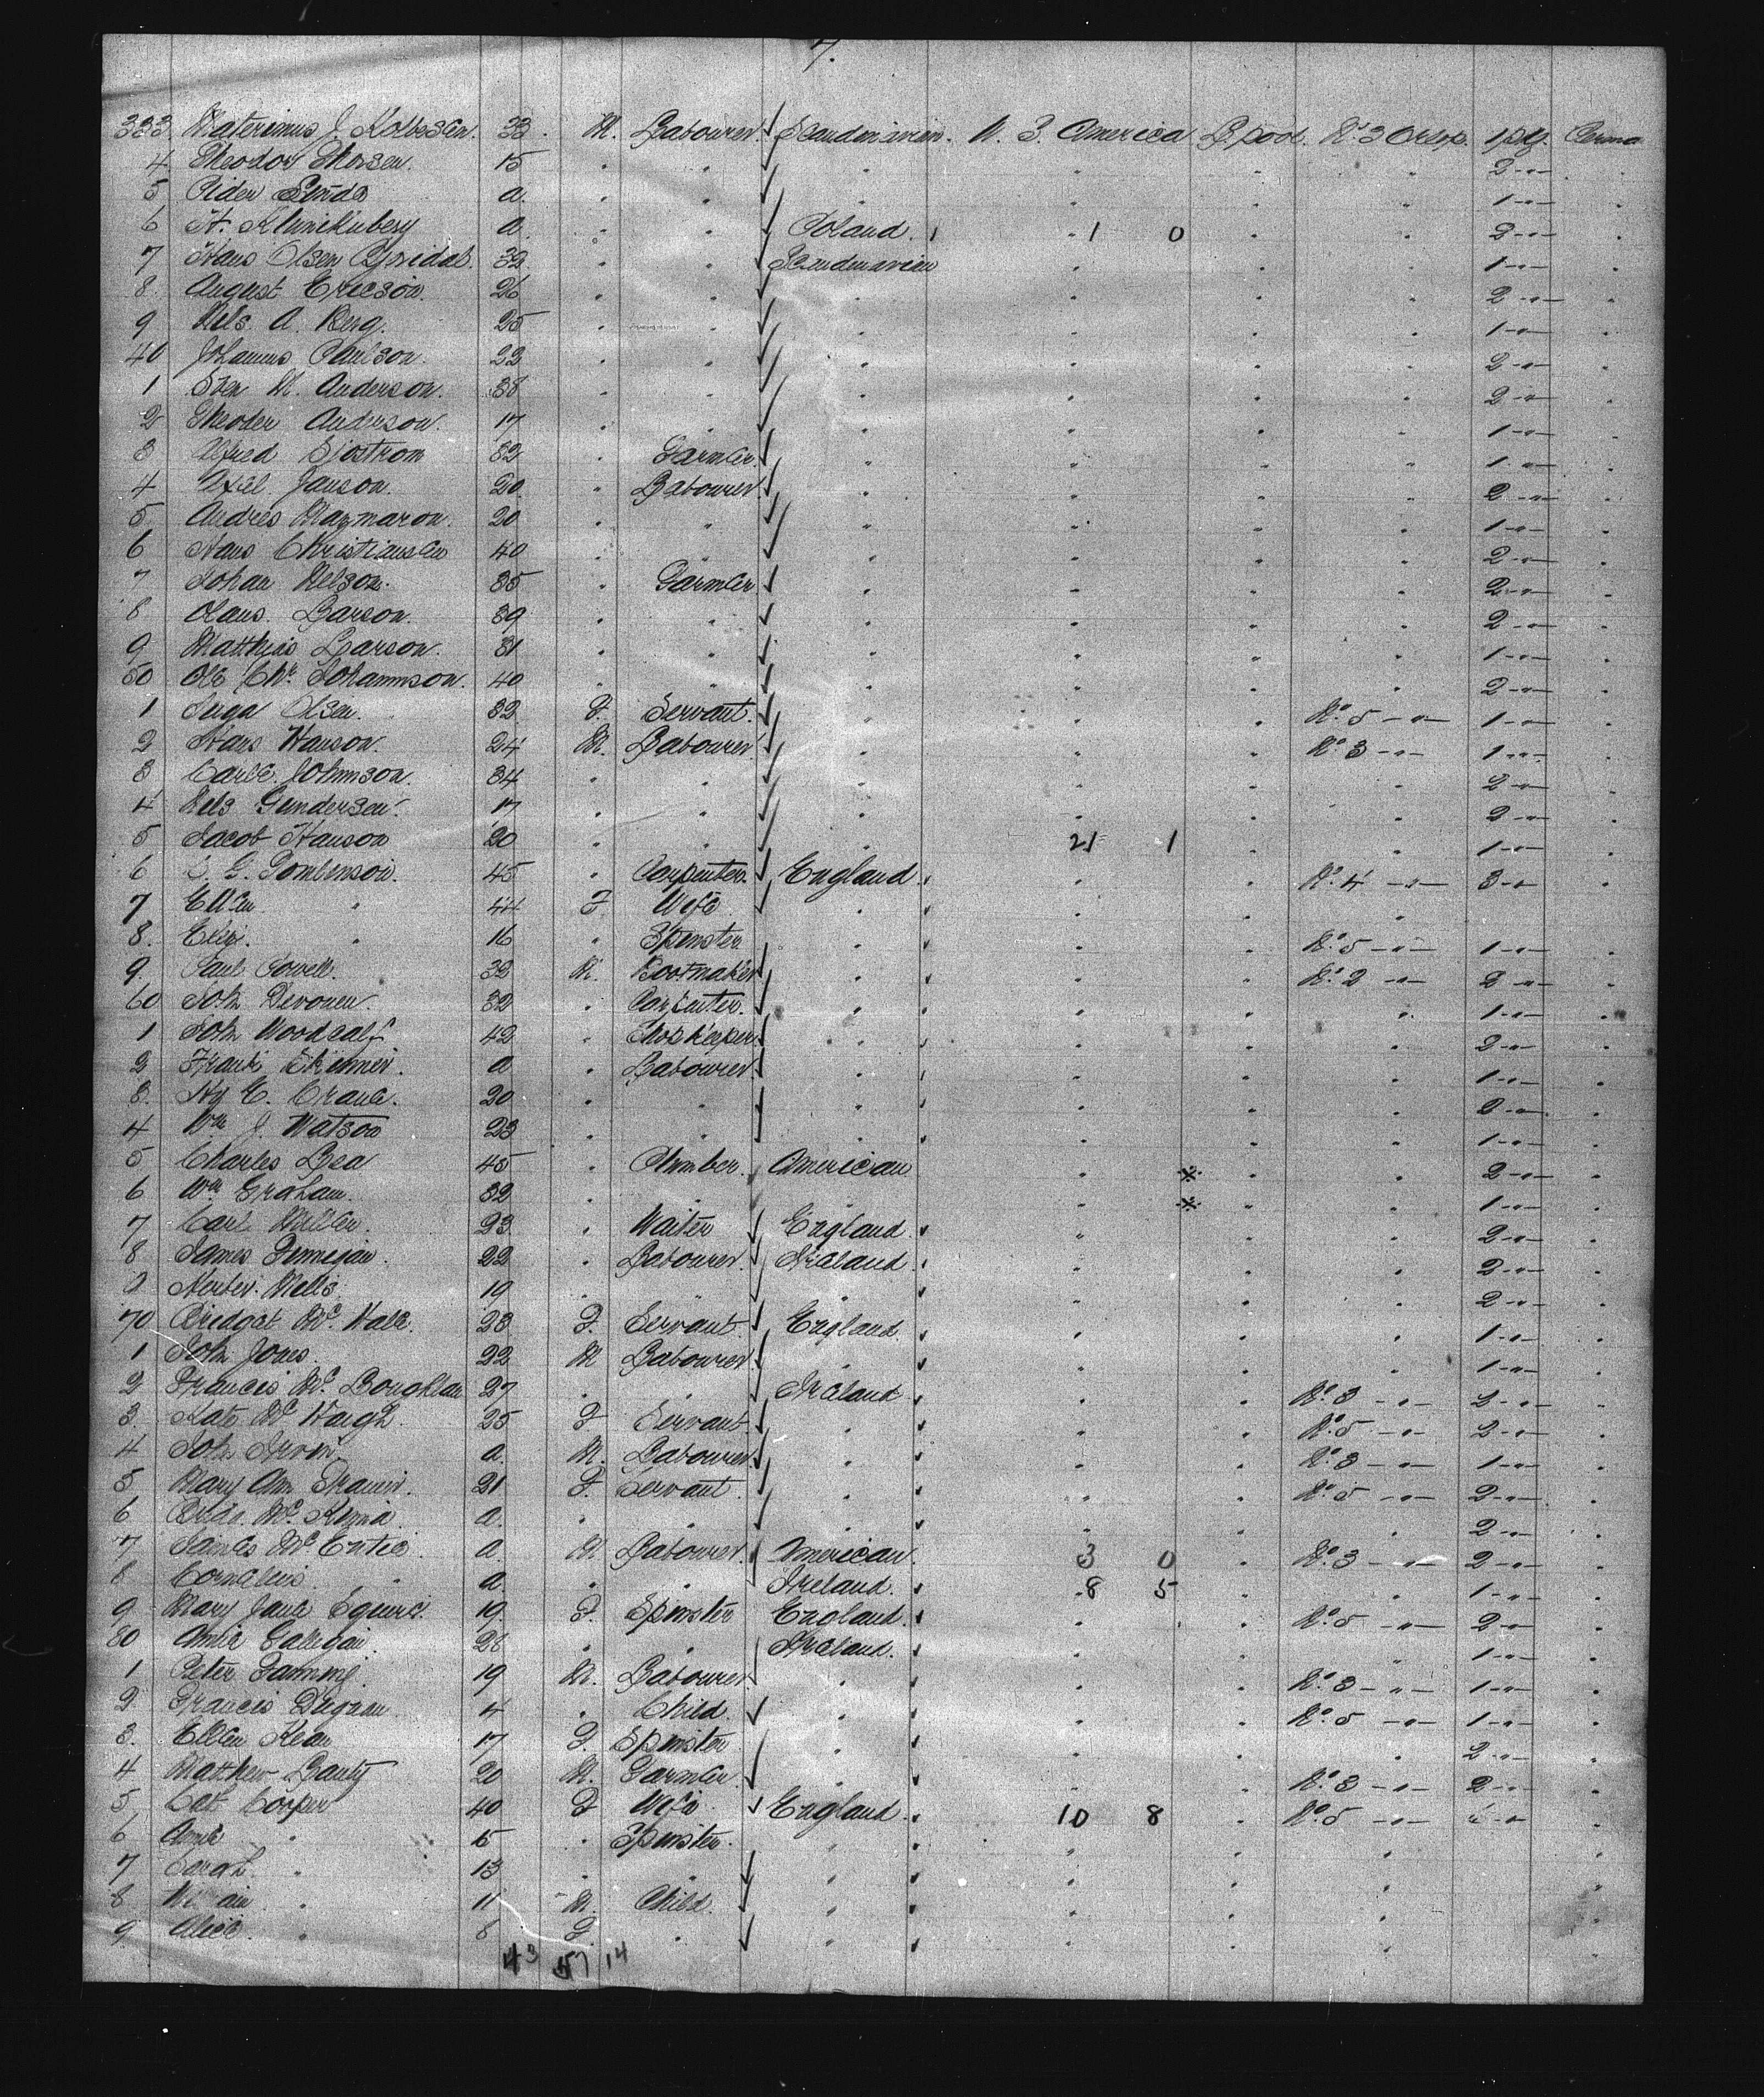 7.
333 J. Kolbesen. 33. M. Labourer Scandinavian. U. S. America L.pool. No 3 Orlop. 1 pkg. Perma
4 Theodor Thorsen. 15 " " " " " " 2 - " - "
5 a. " " " " " " 1 - " - "
6 H. a " " Poland. 1 " 1 0 " " 2 - " - "
7 Hans Olsen 32 " " Scandinavian " " " 1 - " - "
8. August Ericson. 26 " " " " " " 2 - " - "
9 Nels. A. Berg. 25 " " " " " 1 - " - "
40 Johannes Paulson. 22 " " " " " " 2 - " - "
1 Sven M. Anderson. 38 " " " " " " 2 - " - "
2 Theoder Anderson. 17 " " " " " " 1 - " - "
3 Alfred Sjostrom 32 " Farmer. " " " " 1 - " - "
4 Axel Janson. 20 " Labourer. " " " " 2 - " - "
5 Andres 20 " " " " " " 1 - " - "
6 Hans Christiansen 40 " " " " " " 2 - " - "
7 Johan Nelson. 35 " Farmer " " " " 2 - " - "
8 Olaus. Larson. 39 " " " " " " 2 - " - "
9 Matthias Larson. 31 " " " " " " 1 - " - "
50 Ole Chr. Johannson. 40 " " " " " " 2 - " - "
1 Inga Olsen. 32 F. Servant. " " " No. 5 - " - 1 - " - "
2 Hans Hanson. 24 M. Labourer " " " No. 3 - " - 1 - " - "
3 Johnnson 34 " " " " " " 2 - " - "
4 Nels Gundersen. 17 " " " " " " 2 - " - "
5 Jacob Hanson 20 " " " 21 1 " " 1 - " - "
6 G. Tombenson. 45 " Carpenter. England. " " No. 4 - " - 3 - " - "
7 Ellen " 44 F. Wife " " " "
8. Eliz. " 16 " Spinster " " " No. 5 - " - 1 - " - "
9. Paul Powell. 32 M. Bootmaker " " " No. 2 - " - 2 - " - "
60 John 32 " Carpenter. " " " " 1 - " - "
1 John Woodcalf 42 " Shopkeeper. " " " " 2 - " - "
2 Frank Skinner. a " Labourer. " " " " 1 - " - "
3. Hy E. Crane. 20 " " " " " " 2 - " - "
4 Wm J. Watson 23 " " " " " " 1 - " - "
5 Charles Lea 45 " Plumber. American " * " " 2 - " - "
6 Wm Graham. 32 " " " " * " " 1 - " - "
7 Carl Miller. 23 " Waiter England " " " 2 - " - "
8 James Finnegan. 22 " Labourer. Ireland " " " 2 - " - "
9 Wells. 19 " " " " " " 2 - " - "
70 Bridget Mc. Hale. 23 F. Servant. England. " " " 1 - " - "
1 John Jones. 22 M Labourer. " " " " 1 - " - "
2 Francis Mc. Loughlan 27 " " Ireland " " No. 3 - " - 2 - " - "
3. Kate Mc Hugh. 25 F Servant. " " " No. 5 - " - 2 - " - "
4 John Irvin a. M. Labourer. " " " No. 3 - " - 1 - " - "
5 Mary Ann 21 F. Servant. " " " No. 5 - " - 2 - " - "
6 Mc. Kenna. a. " " " " " " 2 - " - "
7 James Mc Entee. a. M Labourer. American. 3 0 " No. 3 - " - 2 - " - "
8 Cornelius. " a. " " Ireland. 8 5 " " 1 - " - "
9 Mary Jane Squire. 19. F. Spinster England. " " No. 5 - " - 2 - " - "
80 Annie Galligan. 28 " " Ireland. " " " 1 - " - "
1 Peter 19 M. Labourer " " " No. 3 - " - 1 - " - "
2 Francis Dignan. 4 " Child. " " " No. 5 - " - 1 - " - "
3. Ellen Kean 17 F. Spinster " " " " 2 - " - "
4 Matthew 20 M. Farmer. " " " No. 3 - " - 2 - " - "
5 Cath Cooper 40 F Wife. England. 10 8 " No. 5 - " - "
6 Annie " 15 " Spinster. " " " " "
7 Sarah. " 13 " " " " " " "
8 " 11 M. Child. " " " " "
9. Alice. " 8 F. " " " " " "
43 57 14